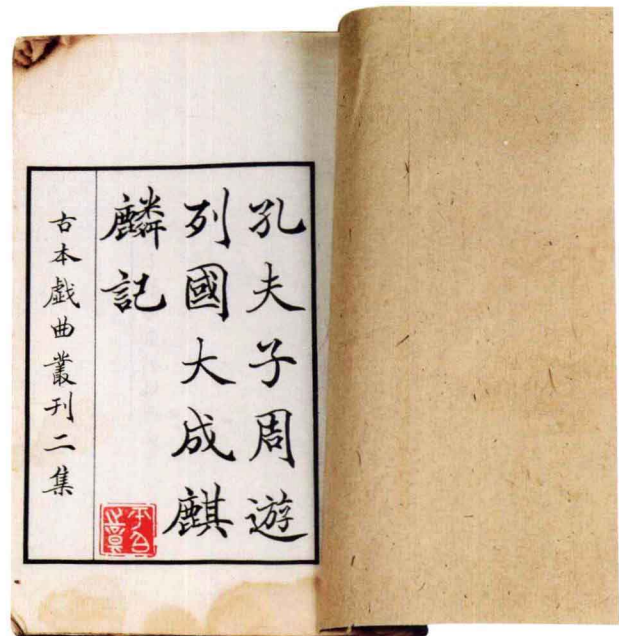 孔夫子周遊
列國大成麒
麟記
古本戲曲叢刊二集